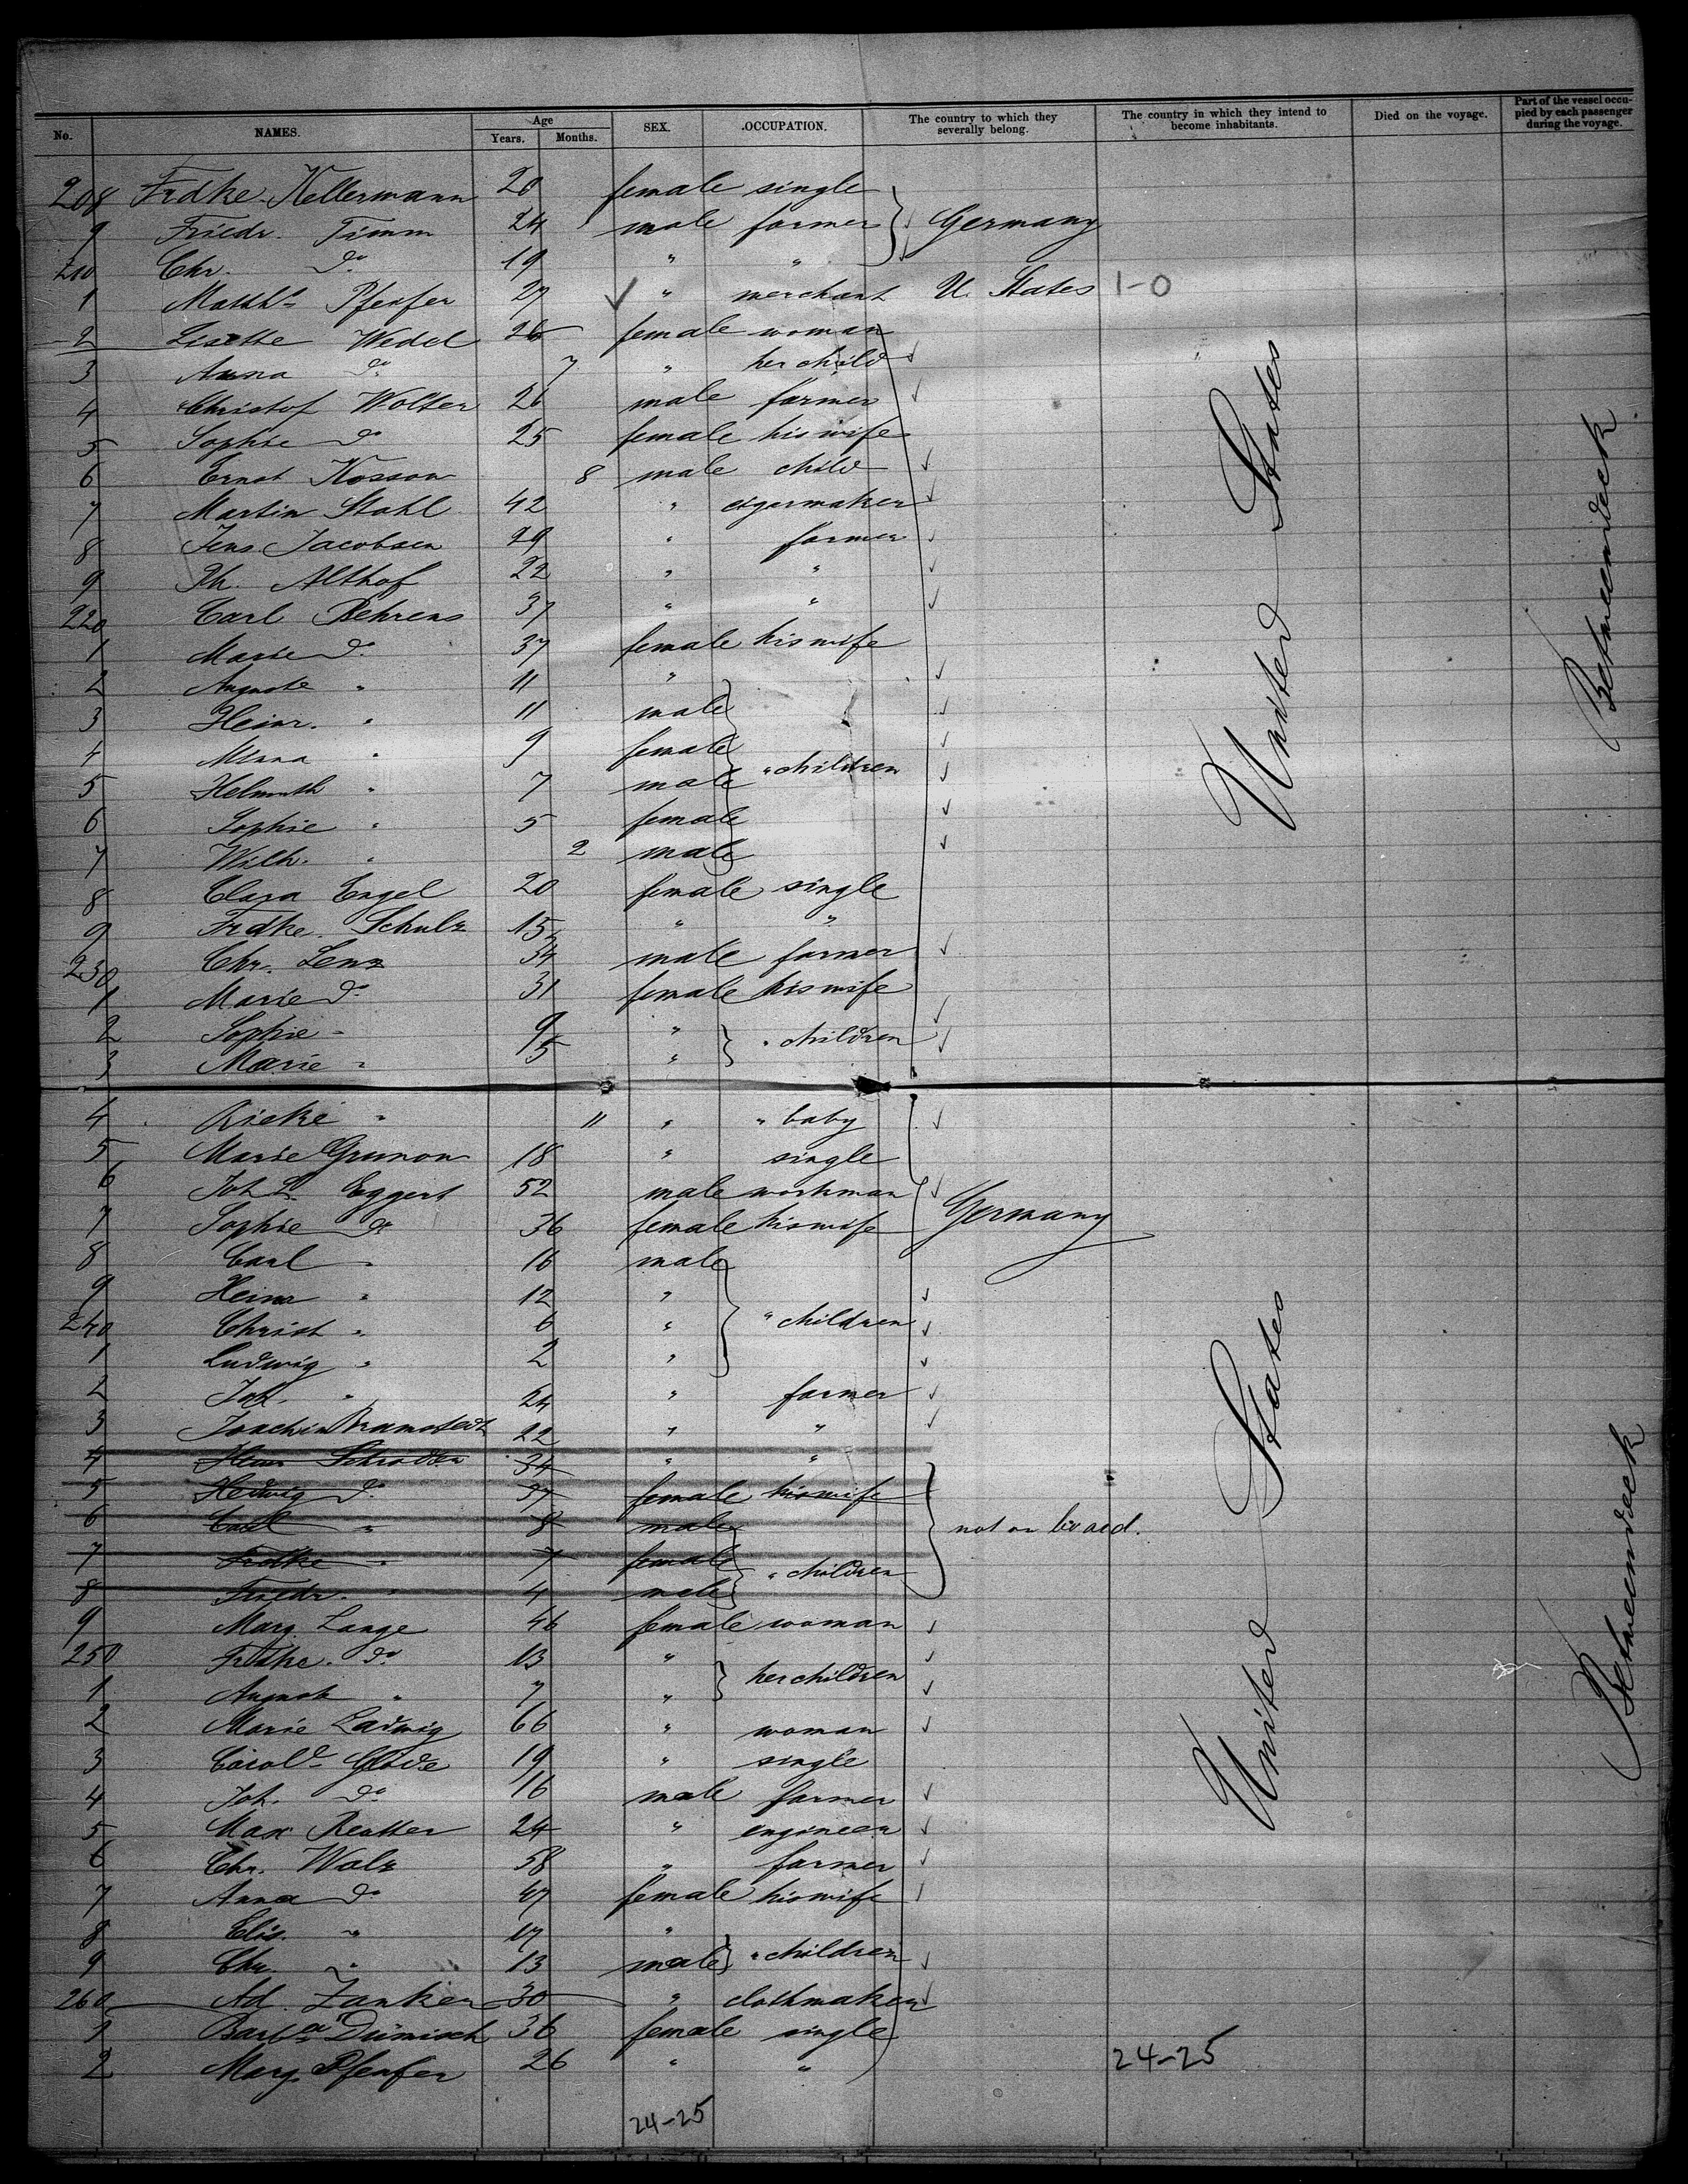 No. NAMES. Age Years. Months. SEX. OCCUPATION. The country to which they severally belong. The country in which they intend to become inhabitants. Died on the voyage. Part of the vessel occupied by each passenger during the voyage.
208 Frdke. Kellermann 20 female single
9 Friedr. Timm 24 male farmer Germany
210 Chr. do 19 " "
1 Matths Pfeifer 27 " merchant U. States 1-0
2 Lisette Wedel 26 female woman
3 Anna do 7 " her child
4 Christof Wolter 26 male farmer
5 Sophie do 25 female his wife
6 Ernst Kossow 8 male child
7 Martin Stahl 42 " cigarmaker
8 Jens Jacobsen 29 " farmer
9 Ph. Althof 22 " "
220 Carl Behrens 37 " "
1 Marie do 37 female his wife
2 Auguste " 11 "
3 Heinr. " 11 male
4 Minna " 9 female
5 Helmuth " 7 male " children
6 Sophie " 5 female
7 Wilh. " 2 male
8 Clara Engel 20 female single
9 Frdke. Schulz 15 " "
230 Chr. Lenz 34 male farmer
1 Marie do 31 female his wife
2 Sophie " 9 " " children
3 Marie " 5 "
United States
Betweendeck
4 Rieke " 11 " " baby
5 Marie Grunow 18 " single
6 Joh. Eggert 52 male workman
7 Sophie do 36 female his wife Germany
8 Carl " 16 male
9 Heinr " 12 "
240 Christ " 6 " " children
1 Ludwig " 2 "
2 Joh. " 24 " farmer
3 Joachim Bramstedt 22 " "
4 Heinr Schröder 34 " "
5 Hedwig do 37 female his wife
6 Carl " 8 male not on board.
7 Frdke " 7 female " children
8 Friedr. " 4 male
9 Marg. Lange 46 female woman
250 Frdke. do 13 " her children
1 August " 7 "
2 Marie Ladwig 66 " woman
3 Carol. Glöde 19 " single
4 Joh. do 16 male farmer
5 Max Reutter 24 " engineer
6 Chr. Walz 58 " farmer
7 Anna do 47 female his wife
8 Elis. " 17 "
9 Chr. " 13 male " children
260 Ad. Zanker 30 " clothmaker
1 Barba Dümisch 36 female single
2 Marg. Pfeifer 26 " "
United States
Betweendeck
24-25
24-25